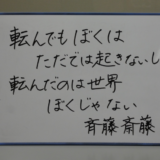 転んでもぼくは
ただでは起きないし
転んだのは世界
ぼくじゃない
斉藤斎藤